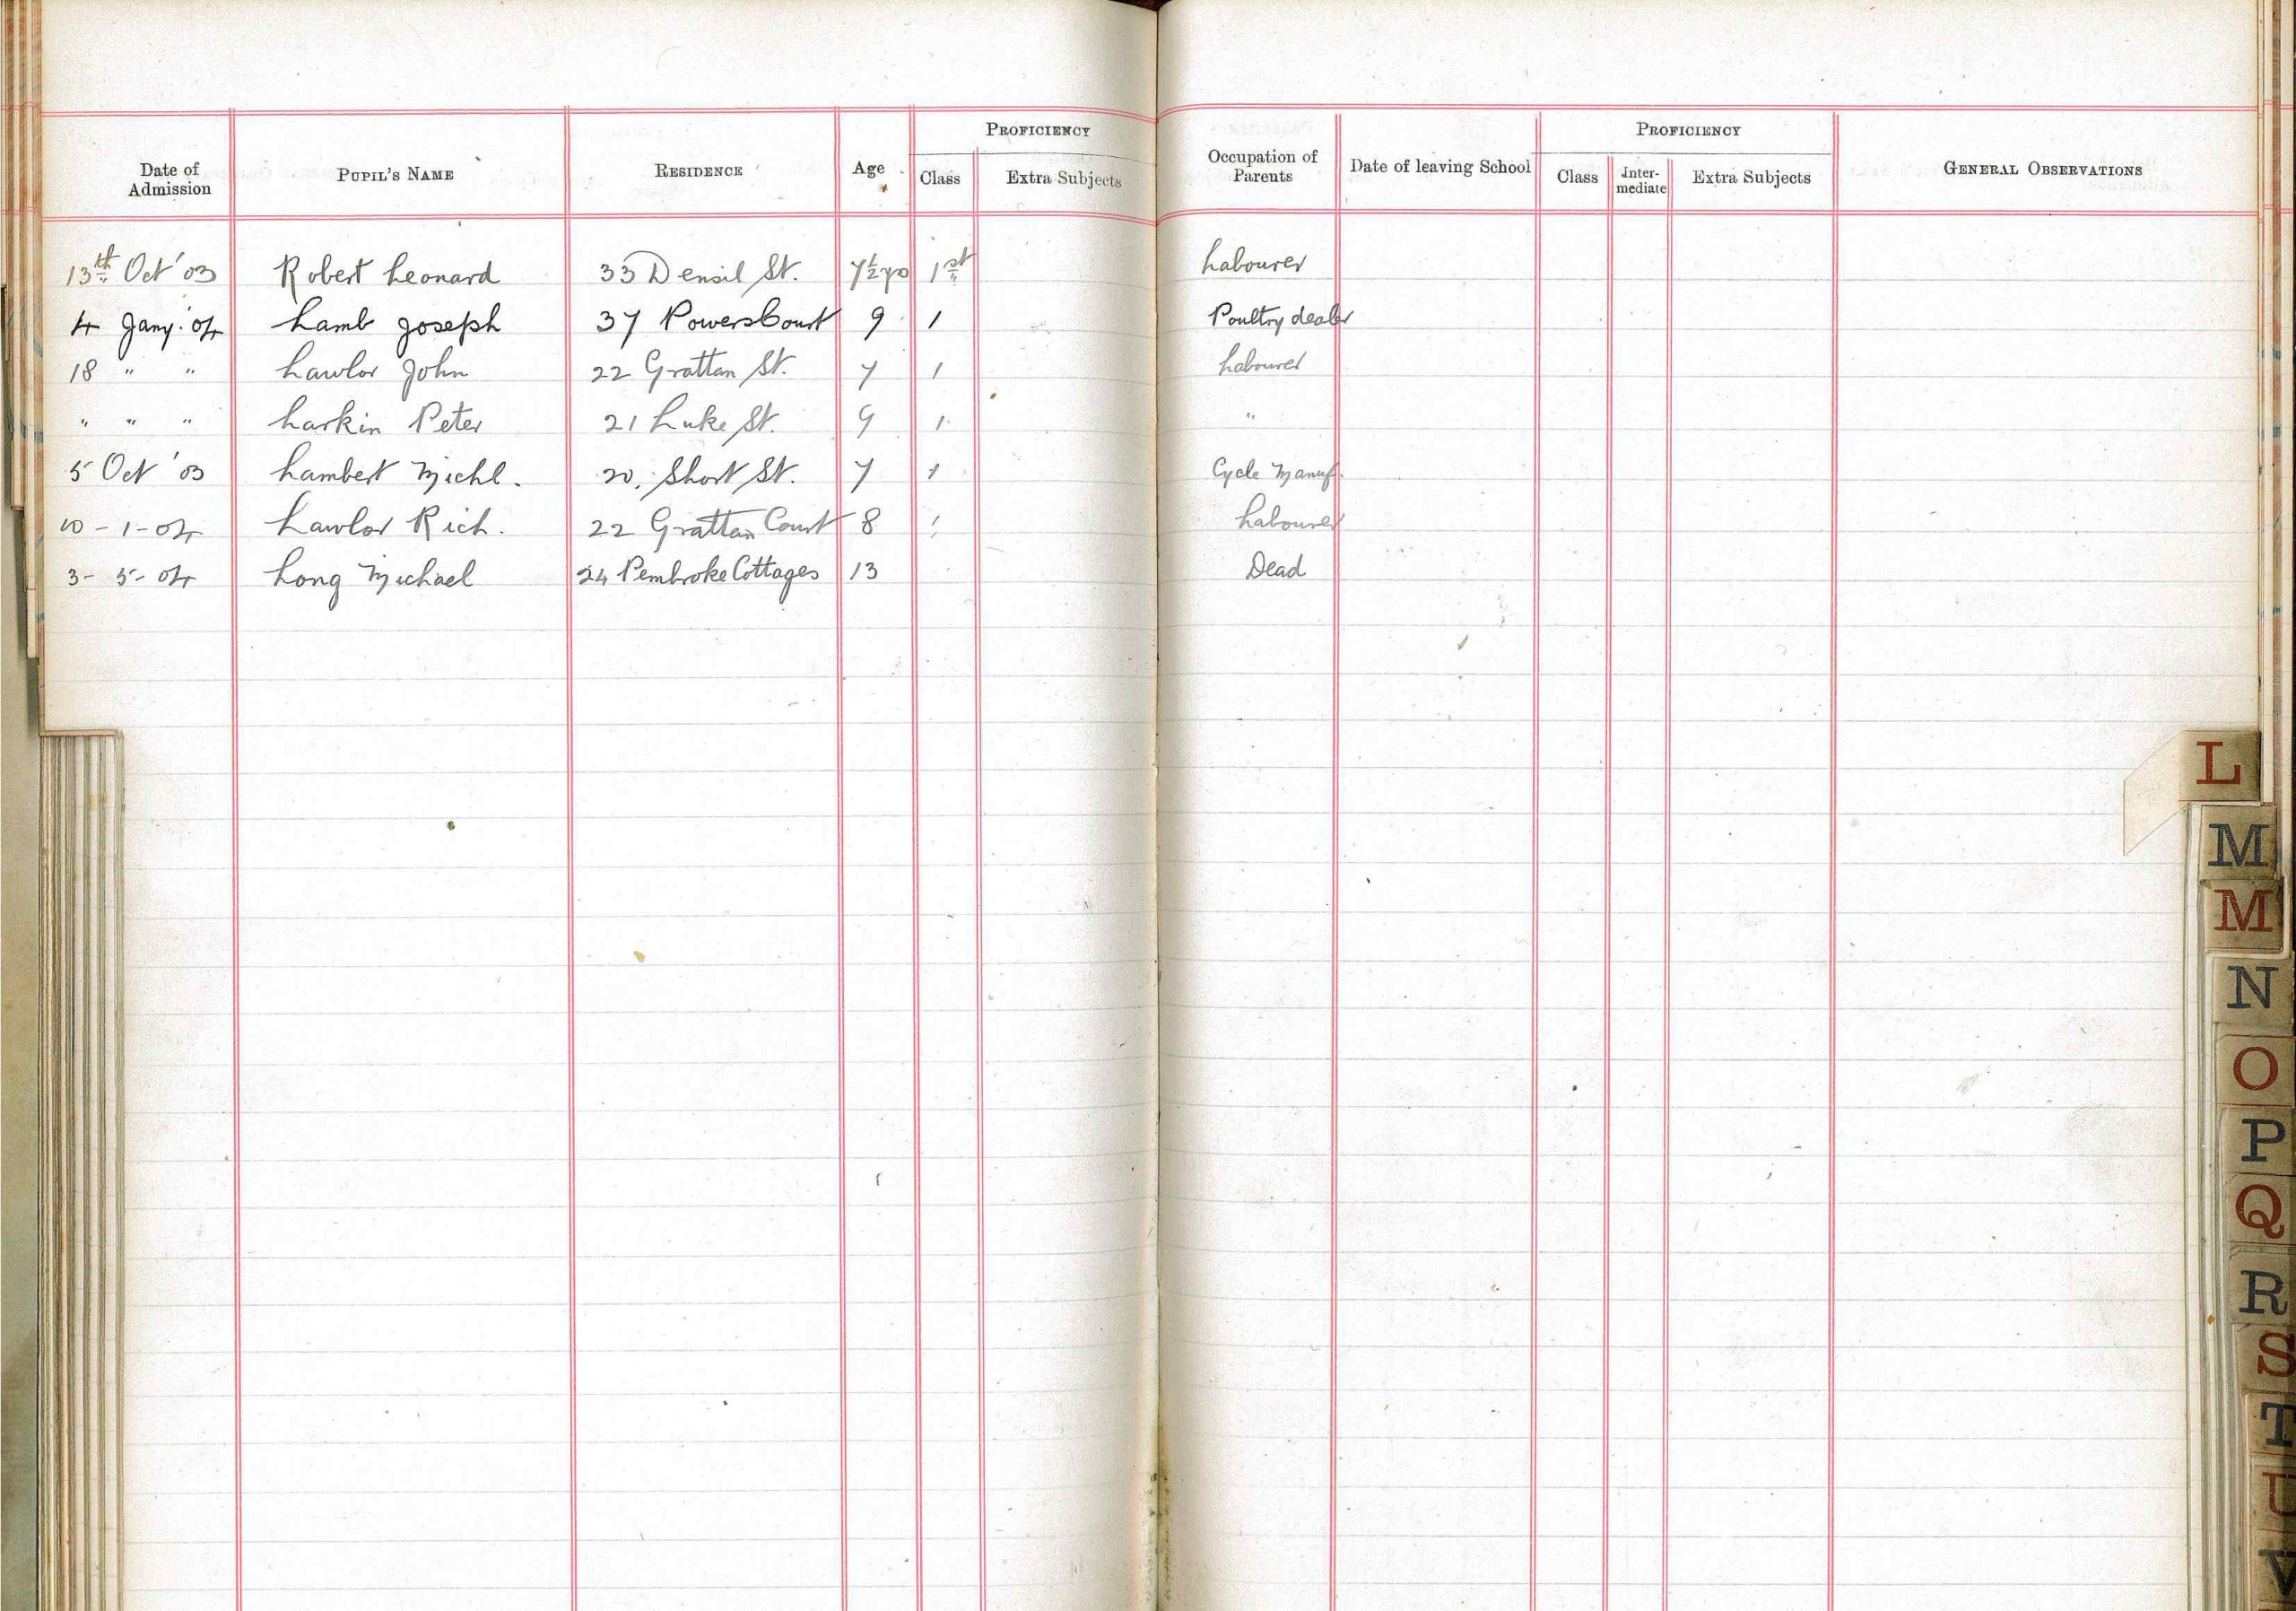 PROFICIENCY PROFICIENCY
Date of Admission PUPIL'S NAME RESIDENCE Age Class Extra Subjects Occupation of Parents Date of leaving School Class Inter-mediate Extra Subjects GENERAL OBSERVATIONS
13th Oct '03 Robert Leonard 33 Denzil St. 7½ yrs 1st Labourer
4 Jany. '04 Lamb Joseph 37 Powerscourt 9 1 Poultry dealer
18 " " Lawlor John 22 Grattan St. 7 1 Labourer
" " " Larkin Peter 21 Luke St. 9 1 "
5 Oct '03 Lambert Michl. 20, Short St. 7 1 Cycle Manuf.
10-1-04 Lawlor Rich. 22 Grattan Court 8 1 Labourer
3-5-04 Long Michael 24 Pembroke Cottages 13 Dead
L
M
M
N
O
P
Q
R
S
T
U
V